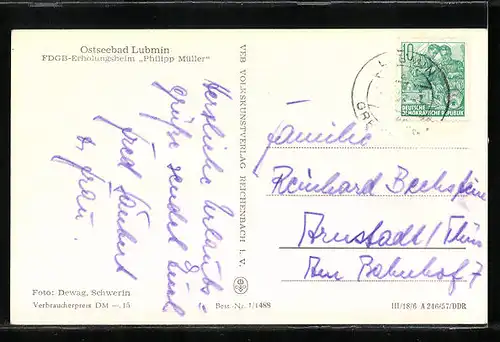 Ostseebad Lubmin
FDGB-Erholungsheim „Philipp Müller"
Herzliche Urlaubs=
grüße sendet Euch
Fred Taubert
u. Frau.
Foto: Dewag, Schwerin
Verbraucherpreis DM —.15
VEB VOLKSKUNSTVERLAG REICHENBACH i. V.
Best.-Nr. 1/1488
10
DEUTSCHE
DEMOKRATISCHE REPUBLIK
Familie
Reinhard Bechstein
Arnstadt/Thür
Am Bahnhof 7
III/18/6 A 246/57/DDR